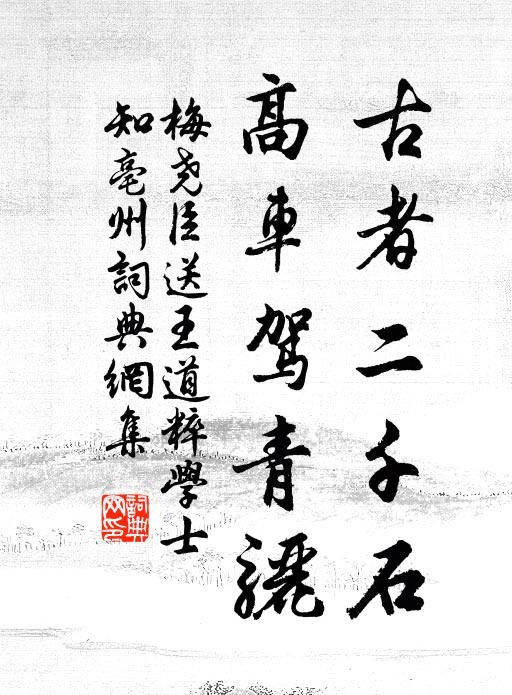 古者二千石
高車駕青驪
梅堯臣送王道粹學士
知亳州詞典網集
詞典
网印